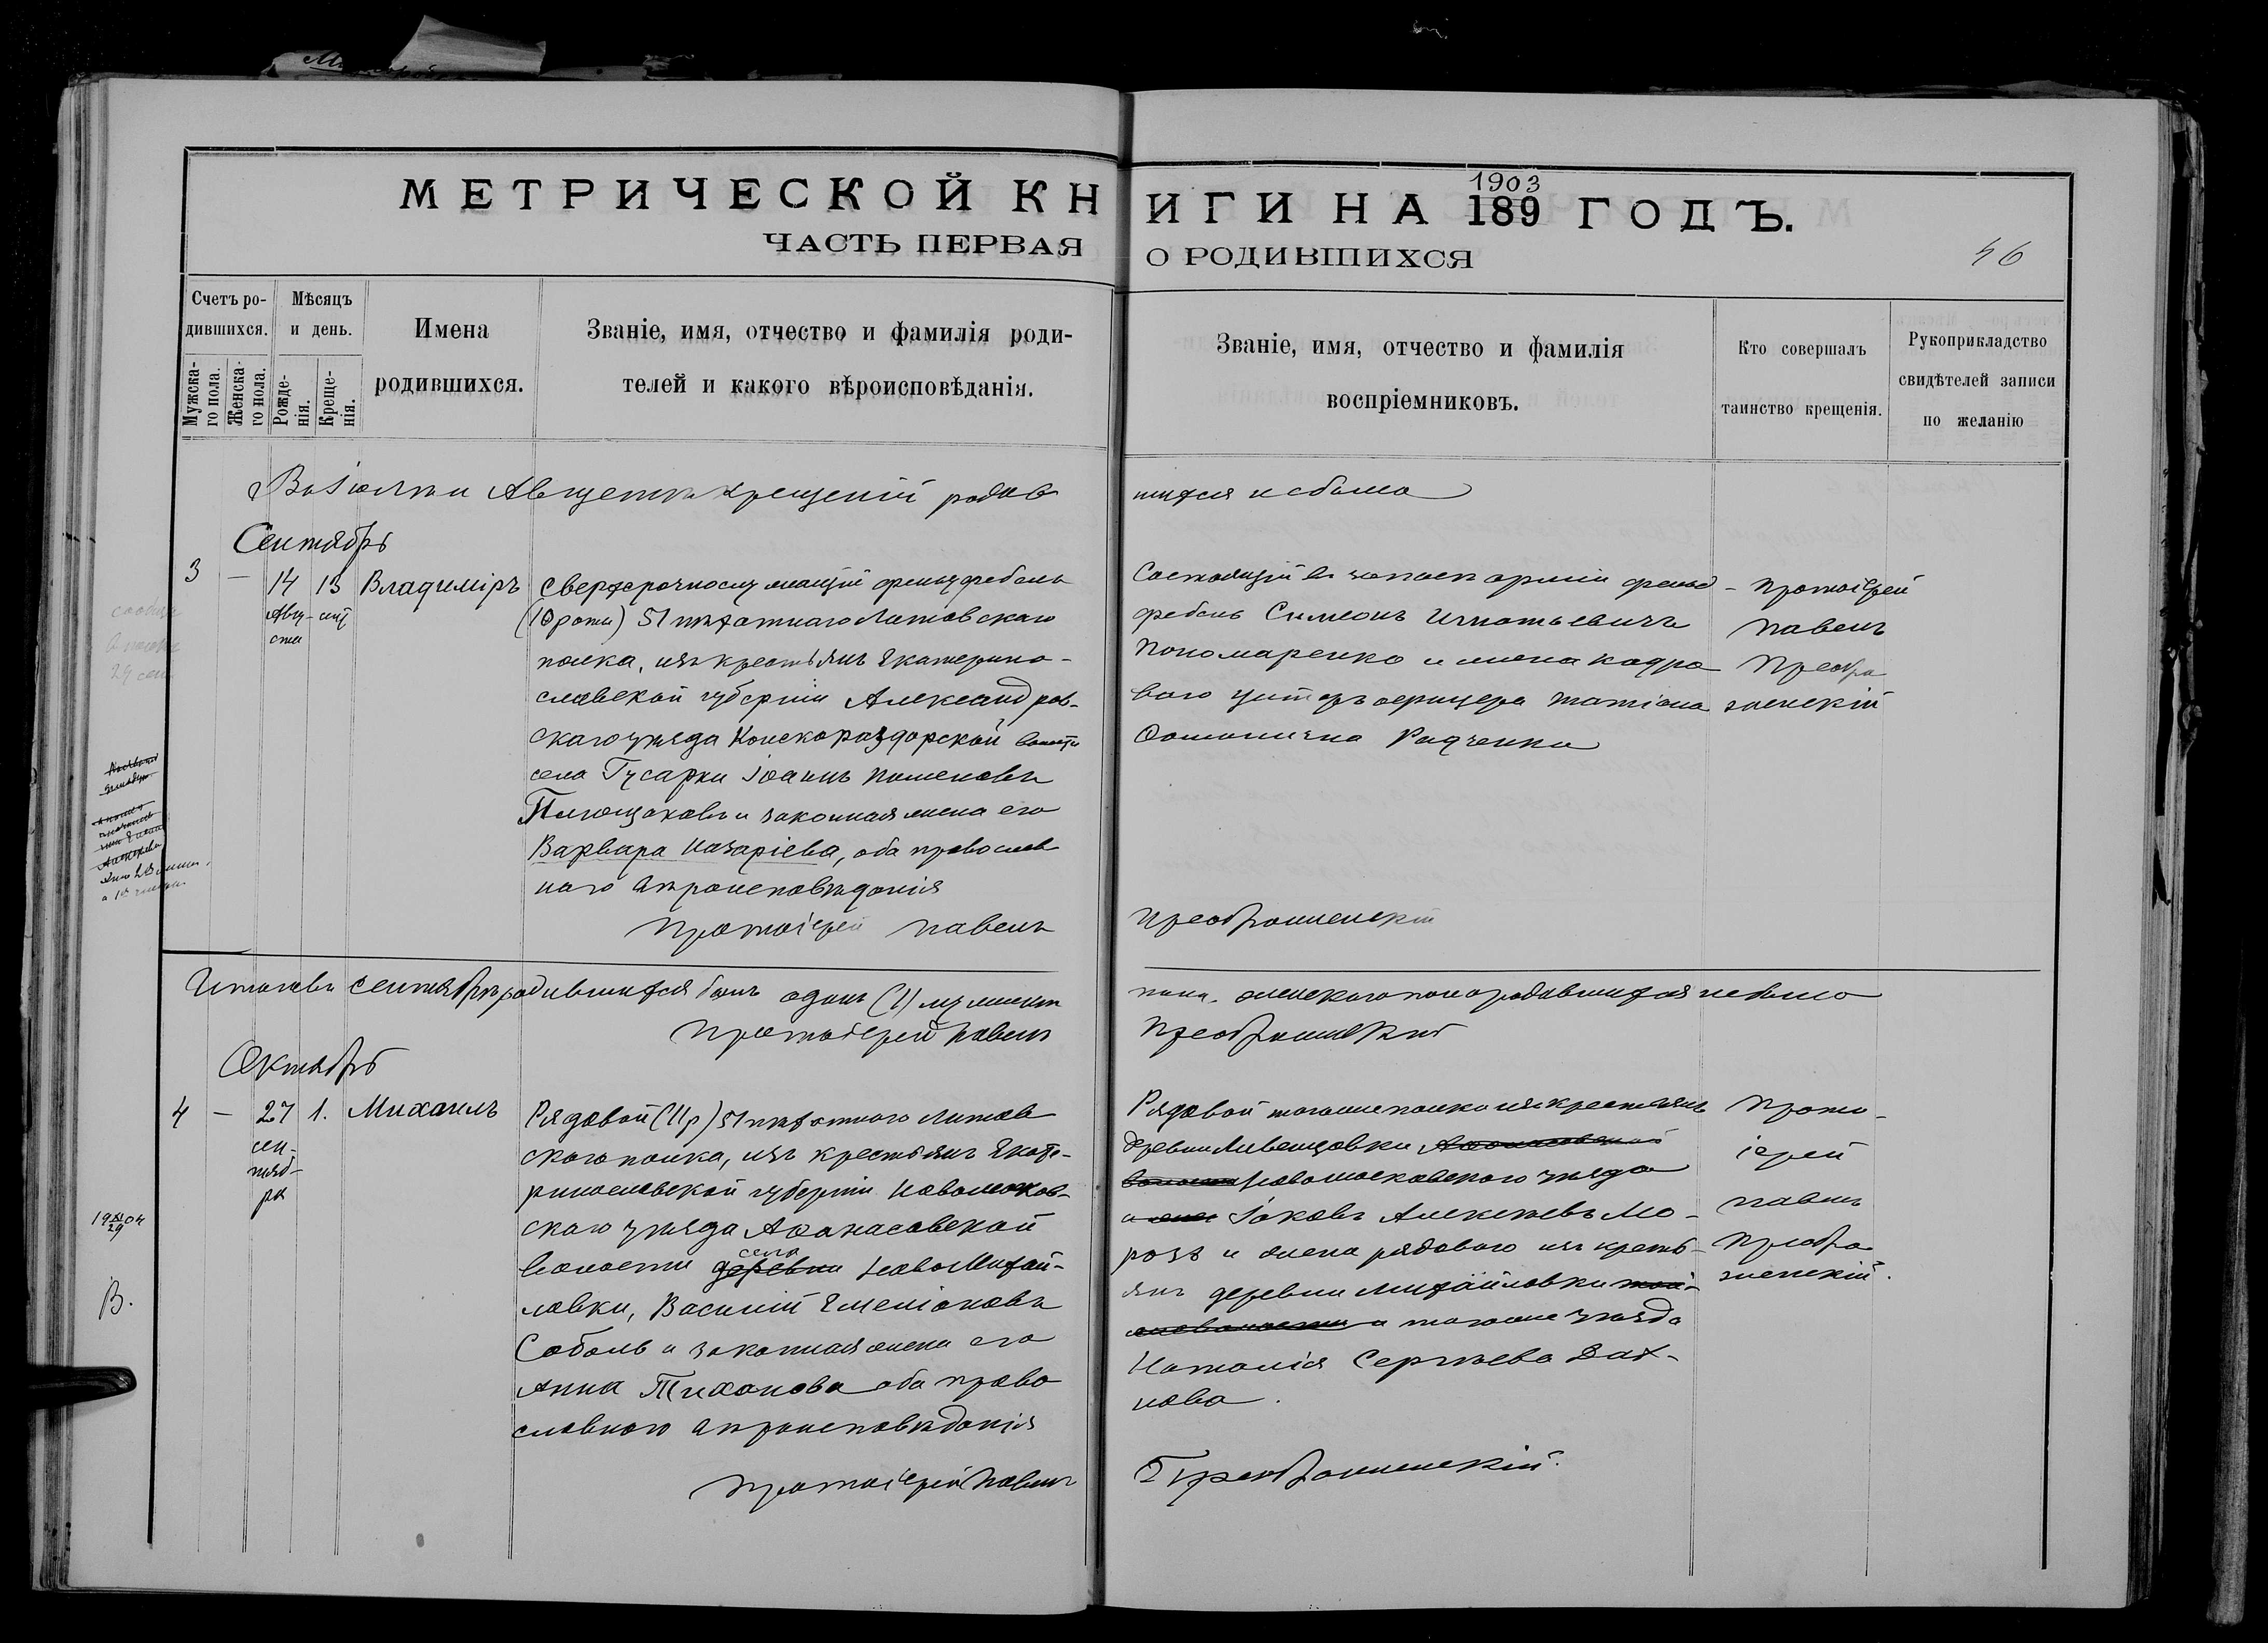 МЕТРИЧЕСКОЙ КНИГИ НА 189 ГОДЪ.
1903
ЧАСТЬ ПЕРВАЯ О РОДИВШИХСЯ
46
Счетъ ро-
дившихся.
Мужска-
го пола.
Женска-
го пола.
Мѣсяцъ
и день.
Рожде-
нія.
Креще-
нія.
Имена
родившихся.
Званіе, имя, отчество и фамилія роди-
телей и какого вѣроисповѣданія.
Званіе, имя, отчество и фамилія
воспріемниковъ.
Кто совершалъ
таинство крещенія.
Рукоприкладство
свидѣтелей записи
по желанію
Августѣ крещеній родив
шихся не было
Сентябрь
3 — 14 13 Владиміръ
Авгу-
ста
Сверхсрочнослужащій фельдфебель
(10 роты) 51 пѣхотнаго Литовскаго
полка, изъ крестьянъ Екатерино-
славской губерніи Александров-
скаго уѣзда Конскораздорской волости
села Гусарки Іоаннъ Пименовъ
и законная жена его
Варвара Назаріева, оба православ
наго вѣроисповѣданія
Протоіерей Павелъ
Состоящій въ запасѣ арміи фельд-
фебель Симеонъ Игнатьевичъ
Пономаренко и жена кадро
ваго унтеръ офицера Татіана
Радченко
Преображенскій
Протоіерей
Павелъ
Преобра
женскій
Итого въ сентябрѣ родившихся былъ одинъ (1) мужеск
пола, женскаго пола родившихся не было
Протоіерей Павелъ
Преображенскій
Октябрь
4 — 27 1. Михаилъ
сен-
тяб-
ря
Рядовой (11 р) 51 пѣхотнаго Литов
скаго полка, изъ крестьянъ Екате-
ринославской губерніи Новомосков-
скаго уѣзда Аѳанасовской
волости деревни села Ново Михай-
ловки, Василій Емеліановъ
Соболь и законная жена его
Анна Тихонова оба право
славнаго вѣроисповѣданія
Протоіерей Павелъ
Рядовой тогоже полка изъ крестьянъ
деревни Ливенцовки
Новомосковскаго уѣзда
Іаковъ Алексѣевъ Мо-
розъ и жена рядоваго изъ кресть-
янъ деревни Михайловки
и тогоже уѣзда
Наталія Сергѣева Дах-
нова.
Преображенскій.
Прото-
іерей
Павелъ
Преобра
женскій.
В.